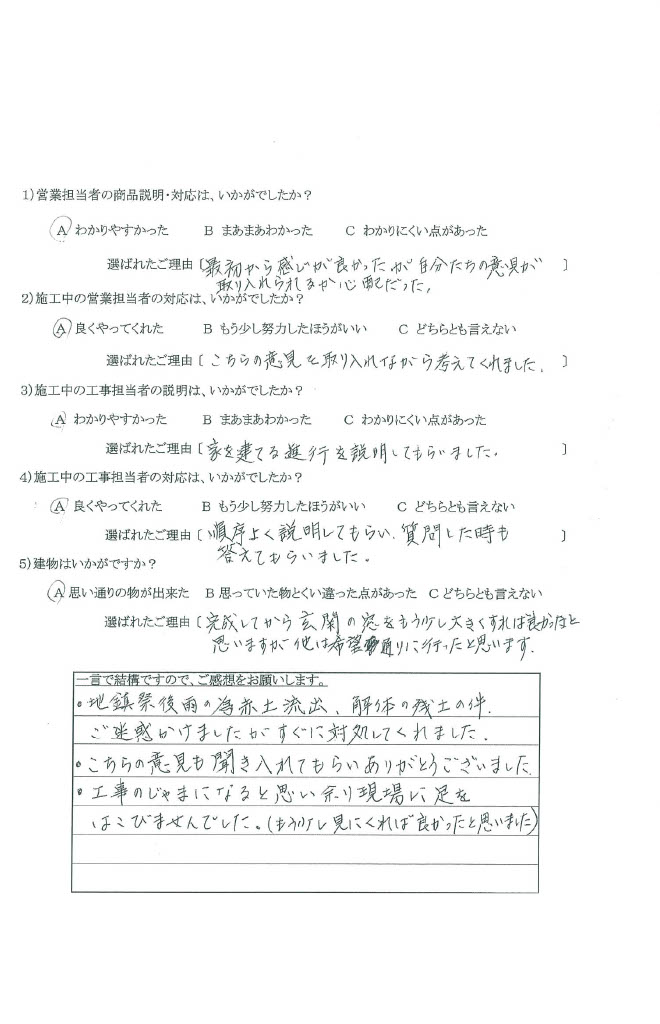 1)営業担当者の商品説明・対応は、いかがでしたか？
A わかりやすかった B まあまあわかった C わかりにくい点があった
選ばれたご理由〔最初から感じが良かったが自分たちの意見が〕
取り入れられるか心配だった。
2)施工中の営業担当者の対応は、いかがでしたか？
A 良くやってくれた B もう少し努力したほうがいい C どちらとも言えない
選ばれたご理由〔こちらの意見を取り入れながら考えてくれました。〕
3)施工中の工事担当者の説明は、いかがでしたか？
A わかりやすかった B まあまあわかった C わかりにくい点があった
選ばれたご理由〔家を建てる進行を説明してもらいました。〕
4)施工中の工事担当者の対応は、いかがでしたか？
A 良くやってくれた B もう少し努力したほうがいい C どちらとも言えない
選ばれたご理由〔順序よく説明してもらい、質問した時も〕
答えてもらいました。
5)建物はいかがですか？
A 思い通りの物が出来た B 思っていた物とくい違った点があった C どちらとも言えない
選ばれたご理由〔完成してから玄関の窓をもう少し大きくすれば良かったと
思いますが他は希望通りに行ったと思います。
一言で結構ですので、ご感想をお願いします。
・地鎮祭後雨の為赤土流出、解体の残土の件、
ご迷惑かけましたがすぐに対処してくれました。
・こちらの意見も聞き入れてもらいありがとうございました。
・工事のじゃまになると思い余り現場に足を
はこびませんでした。(もう少し見にくれば良かったと思いました)